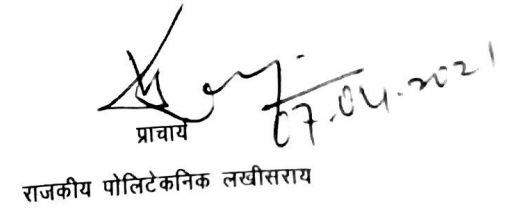 07.04.2021
प्राचार्य
राजकीय पोलिटेकनिक लखीसराय